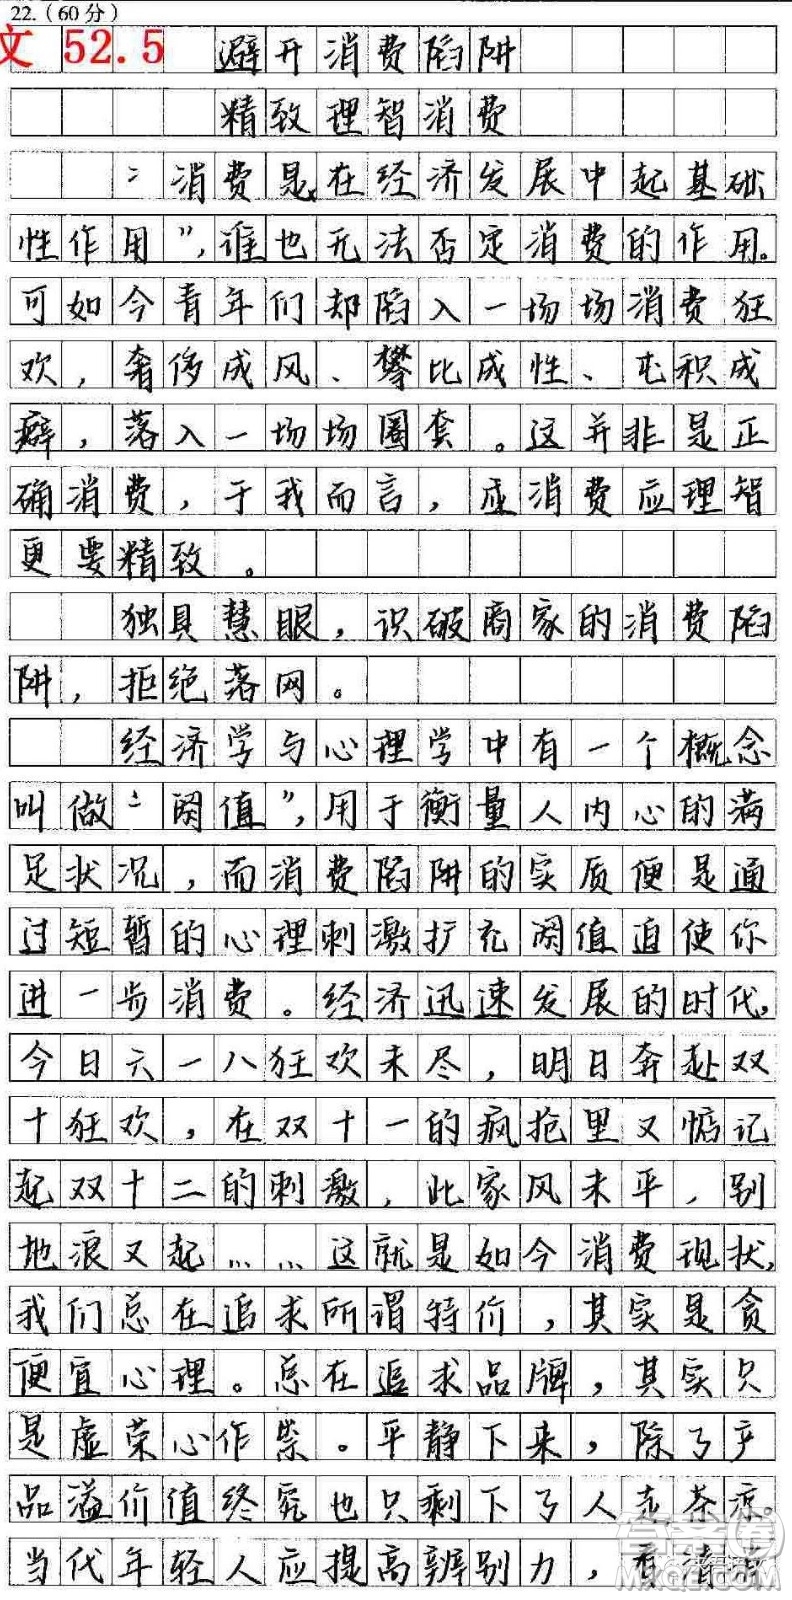 22.（60分）
文 52.5 避开消费陷阱
精致理智消费
“消费是在经济发展中起基础
性作用”，谁也无法否定消费的作用。
可如今青年们却陷入一场场消费狂
欢，奢侈成风、攀比成性、屯积成
癖，落入一场场圈套。这并非是正
确消费，于我而言，应消费应理智
更要精致。
独具慧眼，识破商家的消费陷
阱，拒绝落网。
经济学与心理学中有一个概念
叫做“阈值”，用于衡量人内心的满
足状况，而消费陷阱的实质便是通
过短暂的心理刺激扩充阈值迫使你
进一步消费。经济迅速发展的时代，
今日六一八狂欢未尽，明日奔赴双
十狂欢，在双十一的疯抢里又惦记
起双十二的刺激，此家风未平，别
地浪又起……这就是如今消费现状，
我们总在追求所谓特价，其实是贪
便宜心理。总在追求品牌，其实只
是虚荣心作祟。平静下来，除了产
品溢价值终究也只剩下了人走茶凉。
当代年轻人应提高辨别力，看清卖
答案圈
MXQE.COM